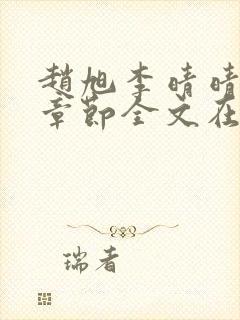 趙旭李晴晴
章節全文在
瑞者